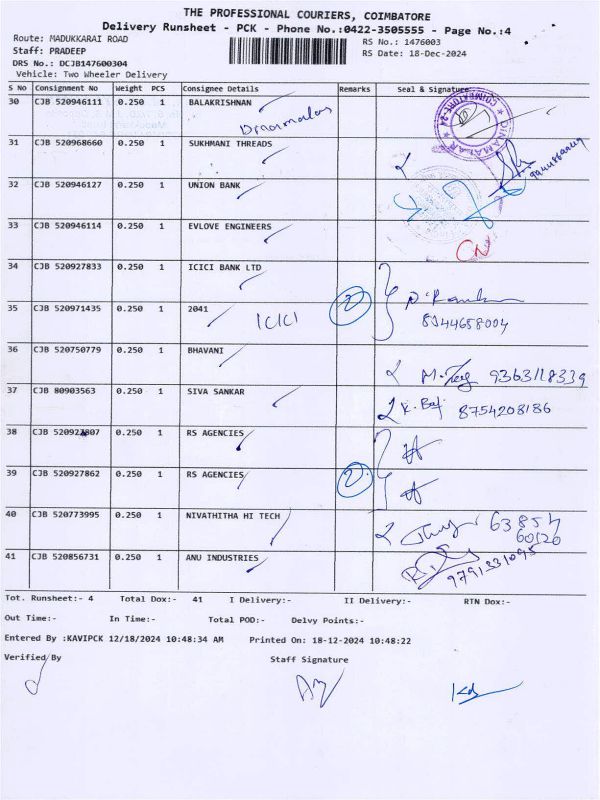 THE PROFESSIONAL COURIERS, COIMBATORE
Delivery Runsheet - PCK - Phone No.:0422-3505555 - Page No.:4
Route: MADUKKARAI ROAD
RS No.: 1476003
Staff: PRADEEP
RS Date: 18-Dec-2024
DRS No.: DCJB147600304
Vehicle: Two Wheeler Delivery
S No Consignment No Weight PCS Consignee Details Remarks Seal & Signature
30 CJB 520946111 0.250 1 BALAKRISHNAN
COIMBATORE-24
DINAMALAR
31 CJB 520968660 0.250 1 SUKHMANI THREADS
32 CJB 520946127 0.250 1 UNION BANK
33 CJB 520946114 0.250 1 EVLOVE ENGINEERS
34 CJB 520927833 0.250 1 ICICI BANK LTD
35 CJB 520971435 0.250 1 2041 2
ICICI 8344658004
36 CJB 520750779 0.250 1 BHAVANI
9363118339
37 CJB 80903563 0.250 1 SIVA SANKAR
8754208186
38 CJB 520927807 0.250 1 RS AGENCIES
39 CJB 520927862 0.250 1 RS AGENCIES 2
40 CJB 520773995 0.250 1 NIVATHITHA HI TECH
63854
60120
41 CJB 520856731 0.250 1 ANU INDUSTRIES
9791331095
Tot. Runsheet:- 4 Total Dox:- 41 I Delivery:- II Delivery:- RTN Dox:-
Out Time:- In Time:- Total POD:- Delvy Points:-
Entered By :KAVIPCK 12/18/2024 10:48:34 AM Printed On: 18-12-2024 10:48:22
Verified By Staff Signature